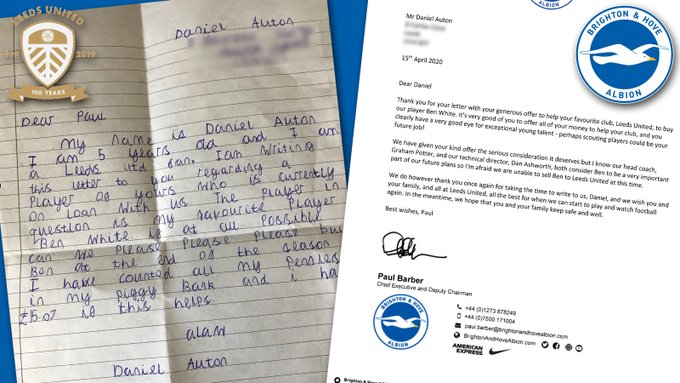 LEEDS UNITED
2019
100 YEARS
Daniel Auton
Dear Paul
My Name is Daniel Auton
I am 5 years old and I am
a Leeds Utd Fan. I am Writing
this letter to you regarding a
Player of yours who is currently
on loan with us. The Player in
question is my favourite Player
Ben White is at all Possible
can we Please Please Please bu
Ben at the end of the season
I have counted all my Pennies
in my piggy Bank and i ha
£15.07 if this helps.
Daniel Auton
BRIGHTON & HOVE
ALBION
ALBION
Mr Daniel Auton
15th April 2020
Dear Daniel
Thank you for your letter with your generous offer to help your favourite club, Leeds United, to buy
our player Ben White. It's very good of you to offer all of your money to help your club, and you
clearly have a very good eye for exceptional young talent - perhaps scouting players could be your
future job!
We have given your kind offer the serious consideration it deserves but I know our head coach,
Graham Potter, and our technical director, Dan Ashworth, both consider Ben to be a very important
part of our future plans so I'm afraid we are unable to sell Ben to Leeds United at this time.
We do however thank you once again for taking the time to write to us, Daniel, and we wish you and
your family, and all at Leeds United, all the best for when we can start to play and watch football
again. In the meantime, we hope that you and your family keep safe and well.
Best wishes, Paul
Paul Barber
Chief Executive and Deputy Chairman
BRIGHTON & HOVE
ALBION
+44 (0)1273 878249
+44 (0)7500 171004
paul.barber@brightonandhovealbion.com
BrightonAndHoveAlbion.com
AMERICAN
EXPRESS